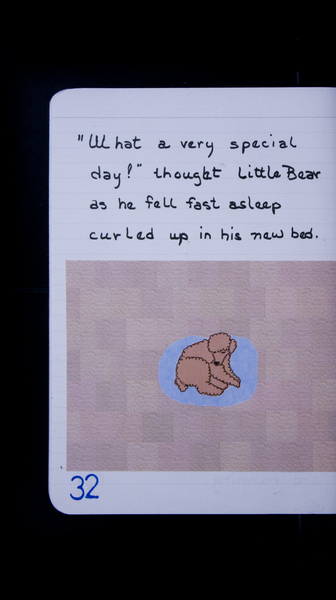 "What a very special
day!" thought Little Bear
as he fell fast asleep
curled up in his new bed.
32